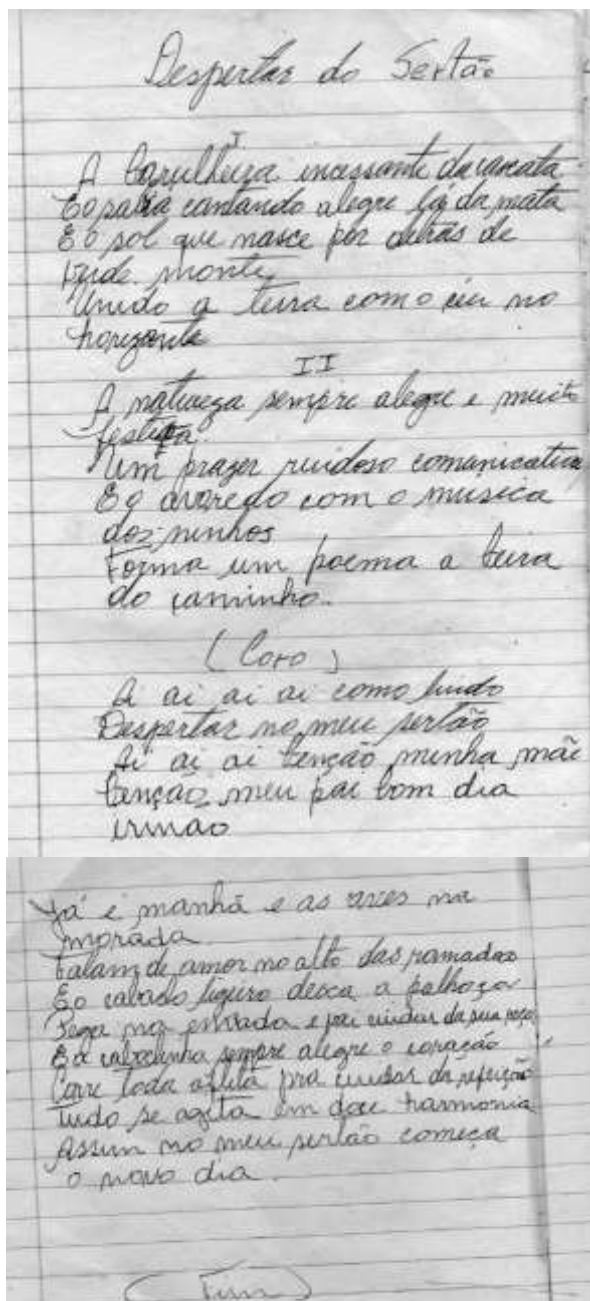 Despertar do Sertão
I
A barulheira incessante da cascata
E o sabiá cantando alegre lá da mata
E o sol que nasce por detrás de
verde monte
Unido a terra com o céu no
horizonte
II
A natureza sempre alegre e muito
festiva
Num prazer ruidoso comunicativa
E o arvoredo com o musica
dos ninhos
Forma um poema a beira
do caminho.
(Coro)
Ai ai ai ai como lindo
Despertar no meu sertão
Ai ai ai benção minha mãe
benção meu pai bom dia
irmão
Já é manhã e as aves na
morada
falam de amor no alto das ramadas
E o caboclo ligeiro deixa a palhoça
Pega na enxada e vai cuidar da sua roça
E a caboclinha sempre alegre o coração
Corre toda aflita pra cuidar da refeição
Tudo se agita em doce harmonia
Assim no meu sertão começa
o novo dia.
(Fim)